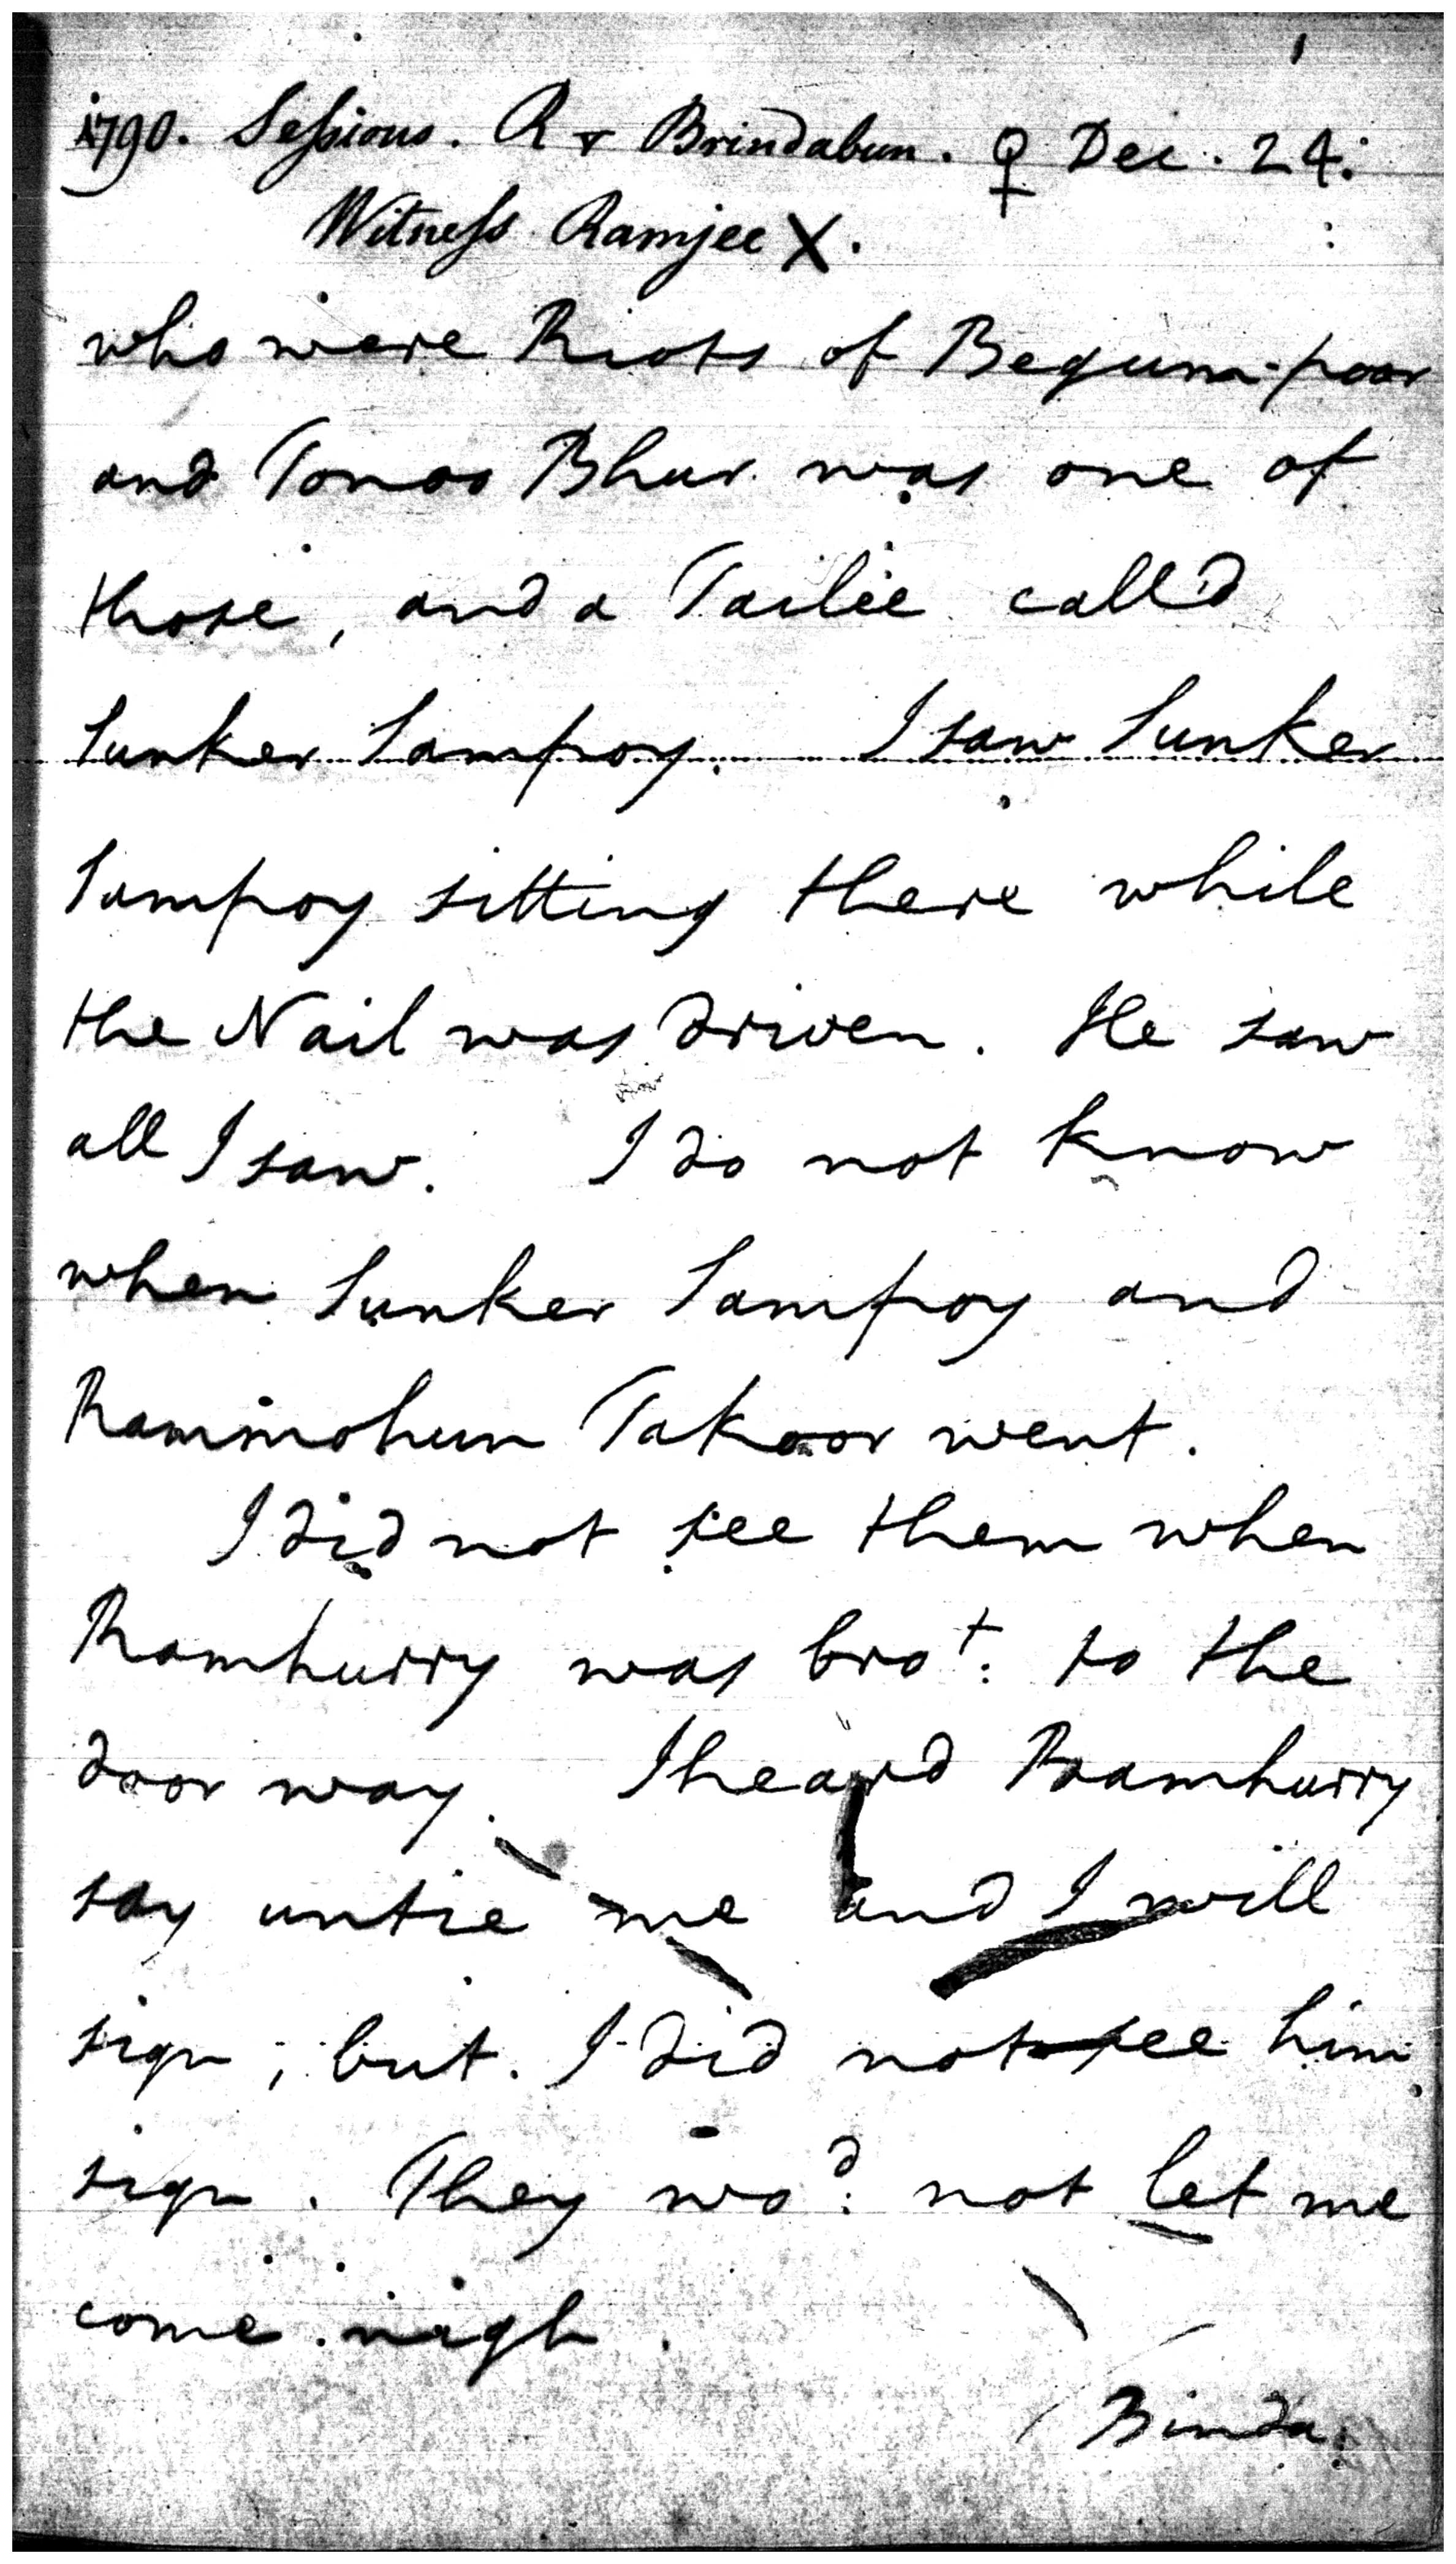 1
1790. Sessions. R v Brindabun. ♀ Dec. 24.
Witness Ramjee X.
who were Riots of Begum-poor
and Tonoo Bhur was one of
those, and a Tailie call'd
Sunker Sampoy. I saw Sunker
Sampoy sitting there while
the Nail was driven. He saw
all I saw. I do not know
when Sunker Sampoy and
Rammohun Takoor went.
I did not see them when
Ramhurry was bro^t: to the
door way. I heard Ramhurry
say untie me and I will
sign; but I did not see him
sign. They wo^d: not let me
come nigh.
Binda